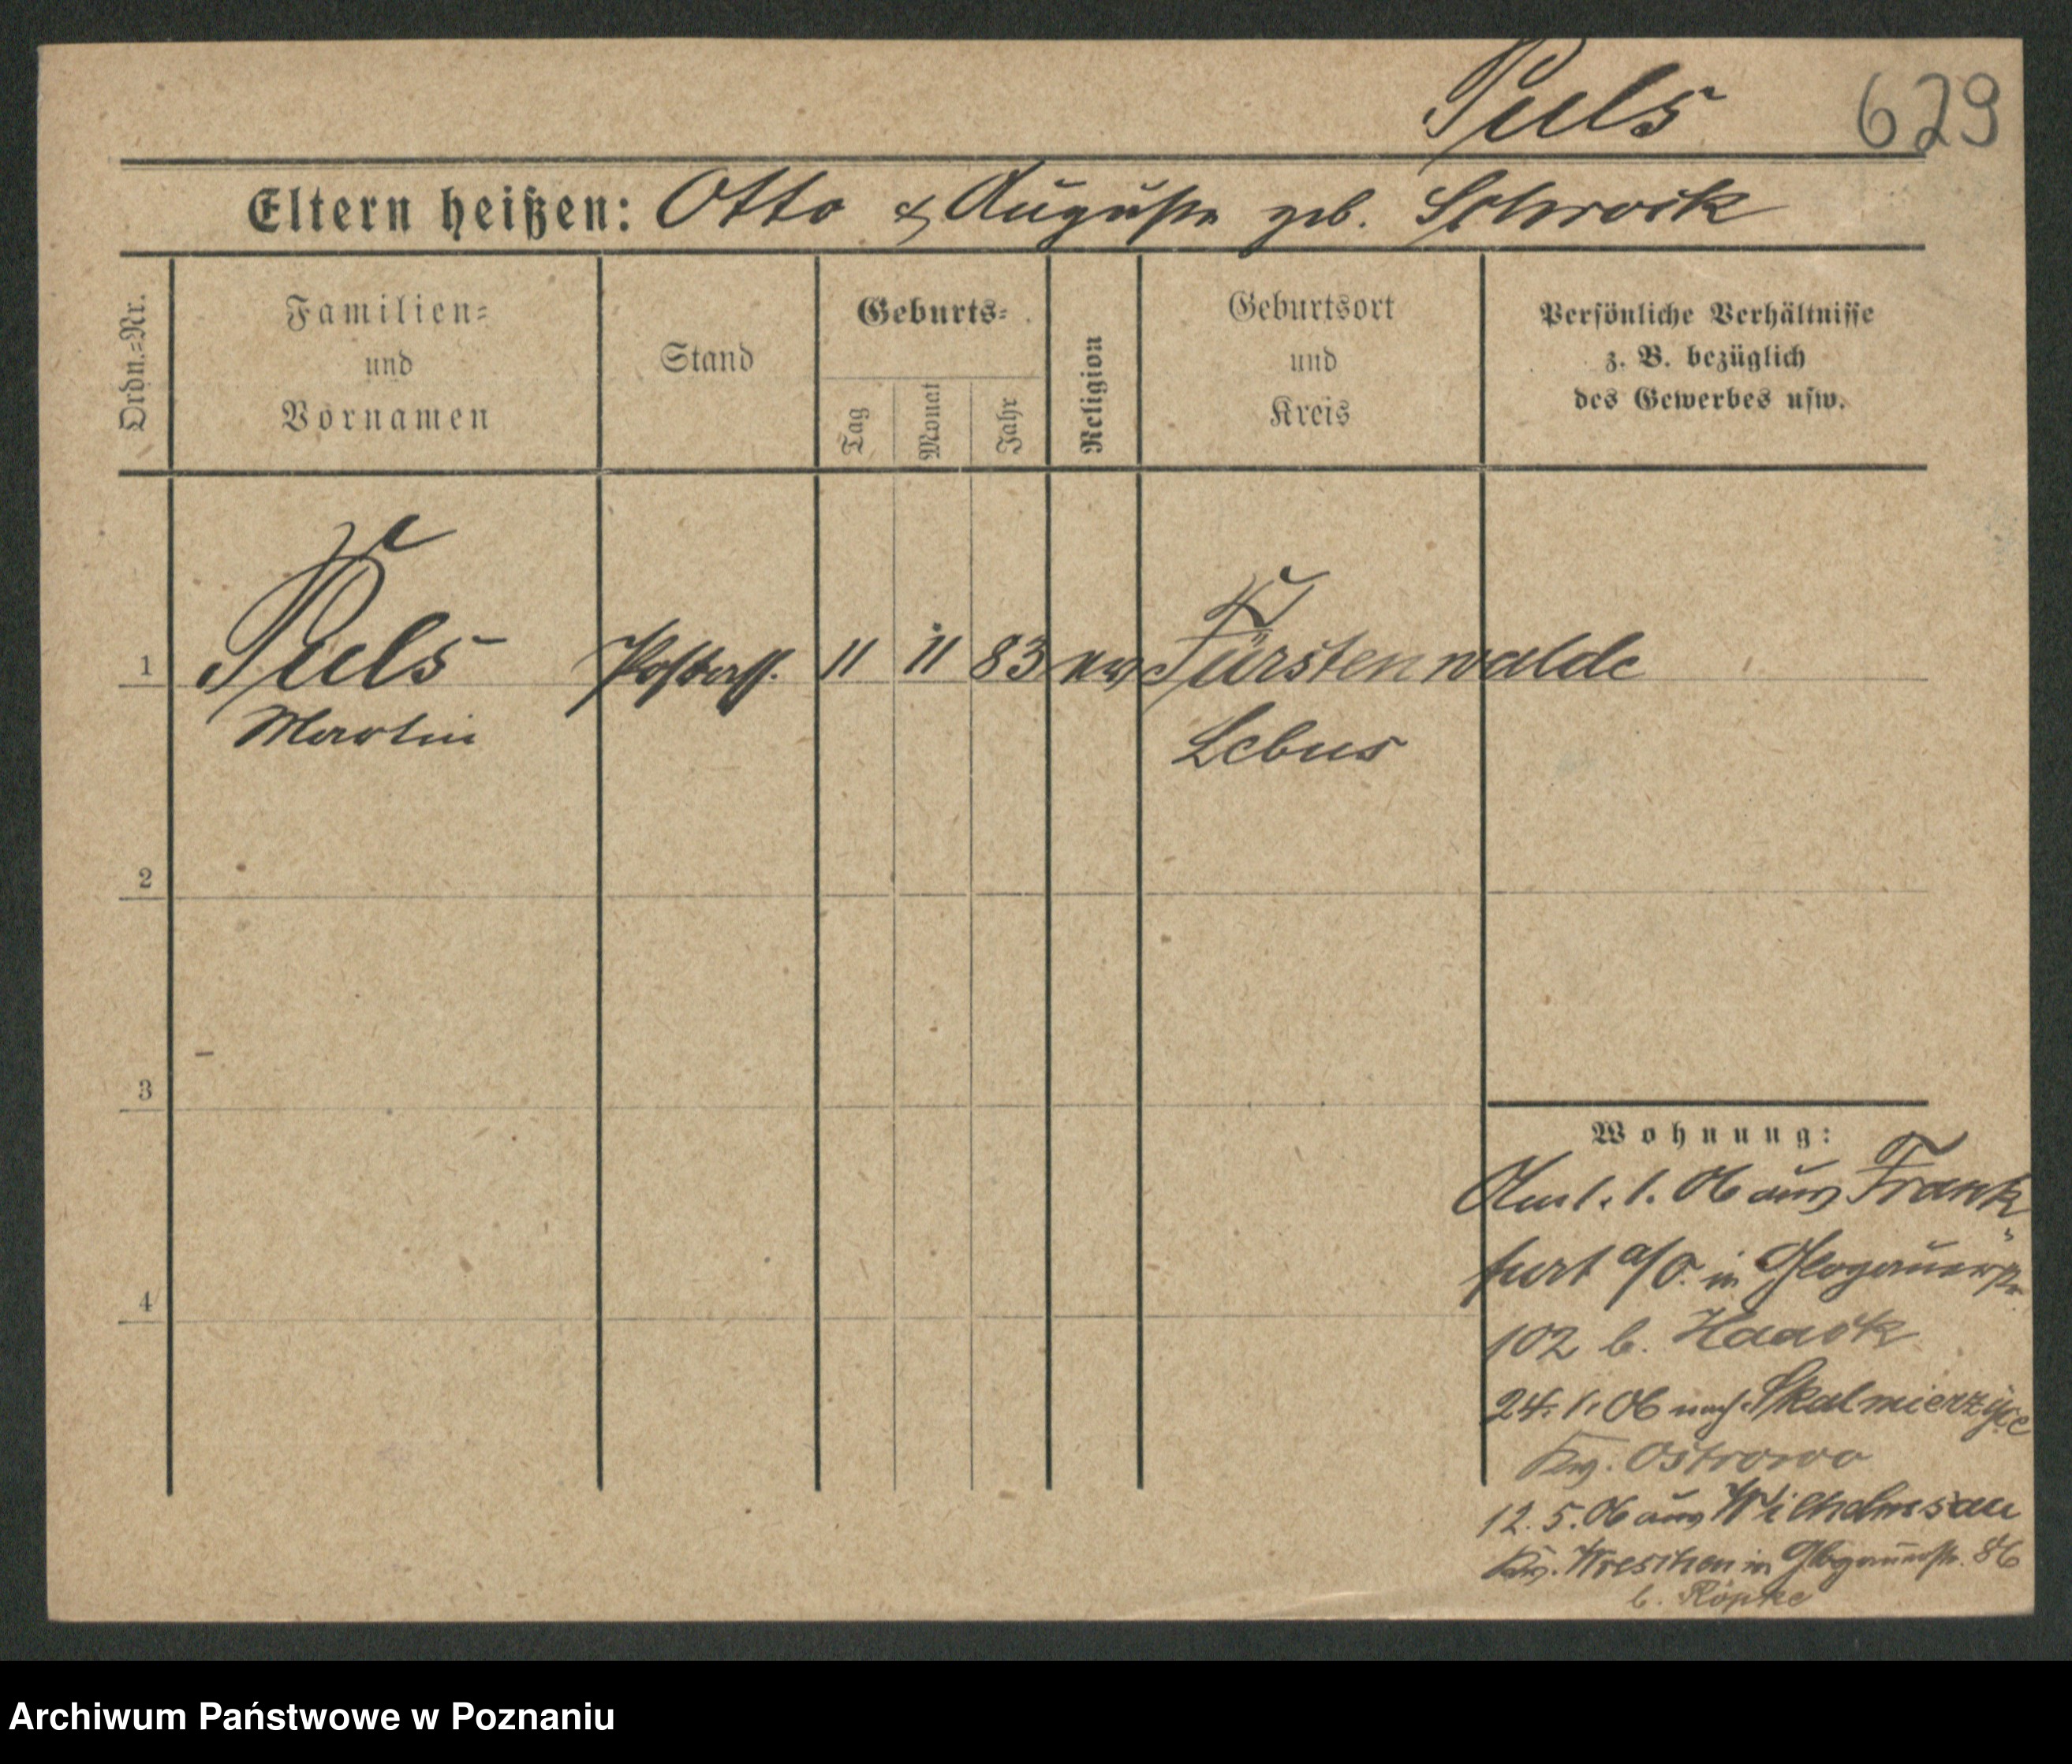 Puls 629
Eltern heißen: Otto & Auguste geb. Schrock
Ordn.=Nr.
Familien=
und
Vornamen
Stand
Geburts=
Tag
Monat
Jahr
Religion
Geburtsort
und
Kreis
Persönliche Verhältnisse
z. B. bezüglich
des Gewerbes usw.
1 Puls Postass. 11 11 83 ev Fürstenwalde
Martin Lebus
2
3
4
Wohnung:
Am 1. 1. 06 aus Frank
furt a/O. in Glogauerstr.
102 b. Haack
24. 1. 06 nach Skalmierzyce
Krs. Ostrowo
12. 5. 06 aus Wilhelmsau
Krs. Wreschen in Glogauerstr. 86
b. Röpke
Archiwum Państwowe w Poznaniu